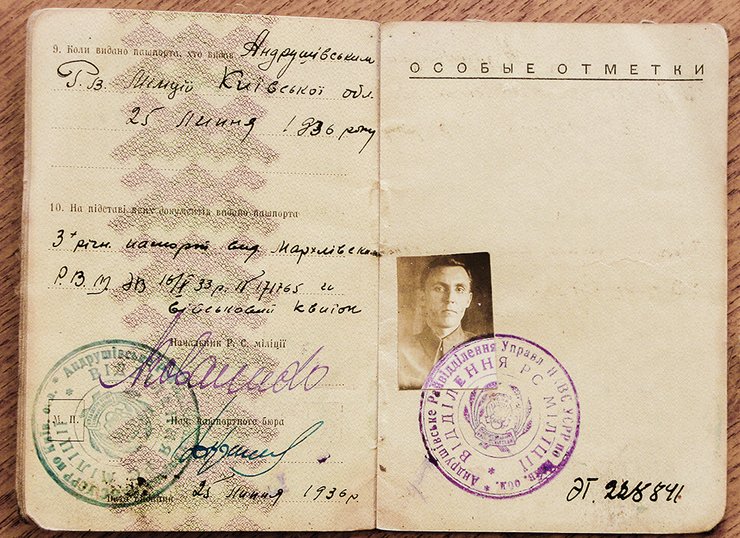 9. Коли видано пашпорта, хто видав Андрушівським
Р.В. Міліції Київської обл.
25 липня 1936 року
10. На підставі яких документів видано пашпорта
3х річн. паспорт вид Мархлівським
Р.В.М. 33 р.
військовий квиток
Начальник Р. С. міліції
М. П.
Нач. пашпортного бюра
25 липня 1936 р
ОСОБЫЕ ОТМЕТКИ
Андрушівське Райвідділення Управл НКВС УСРР по
ВІДДІЛЕННЯ РС МІЛІЦІЇ
ЭГ. 228841